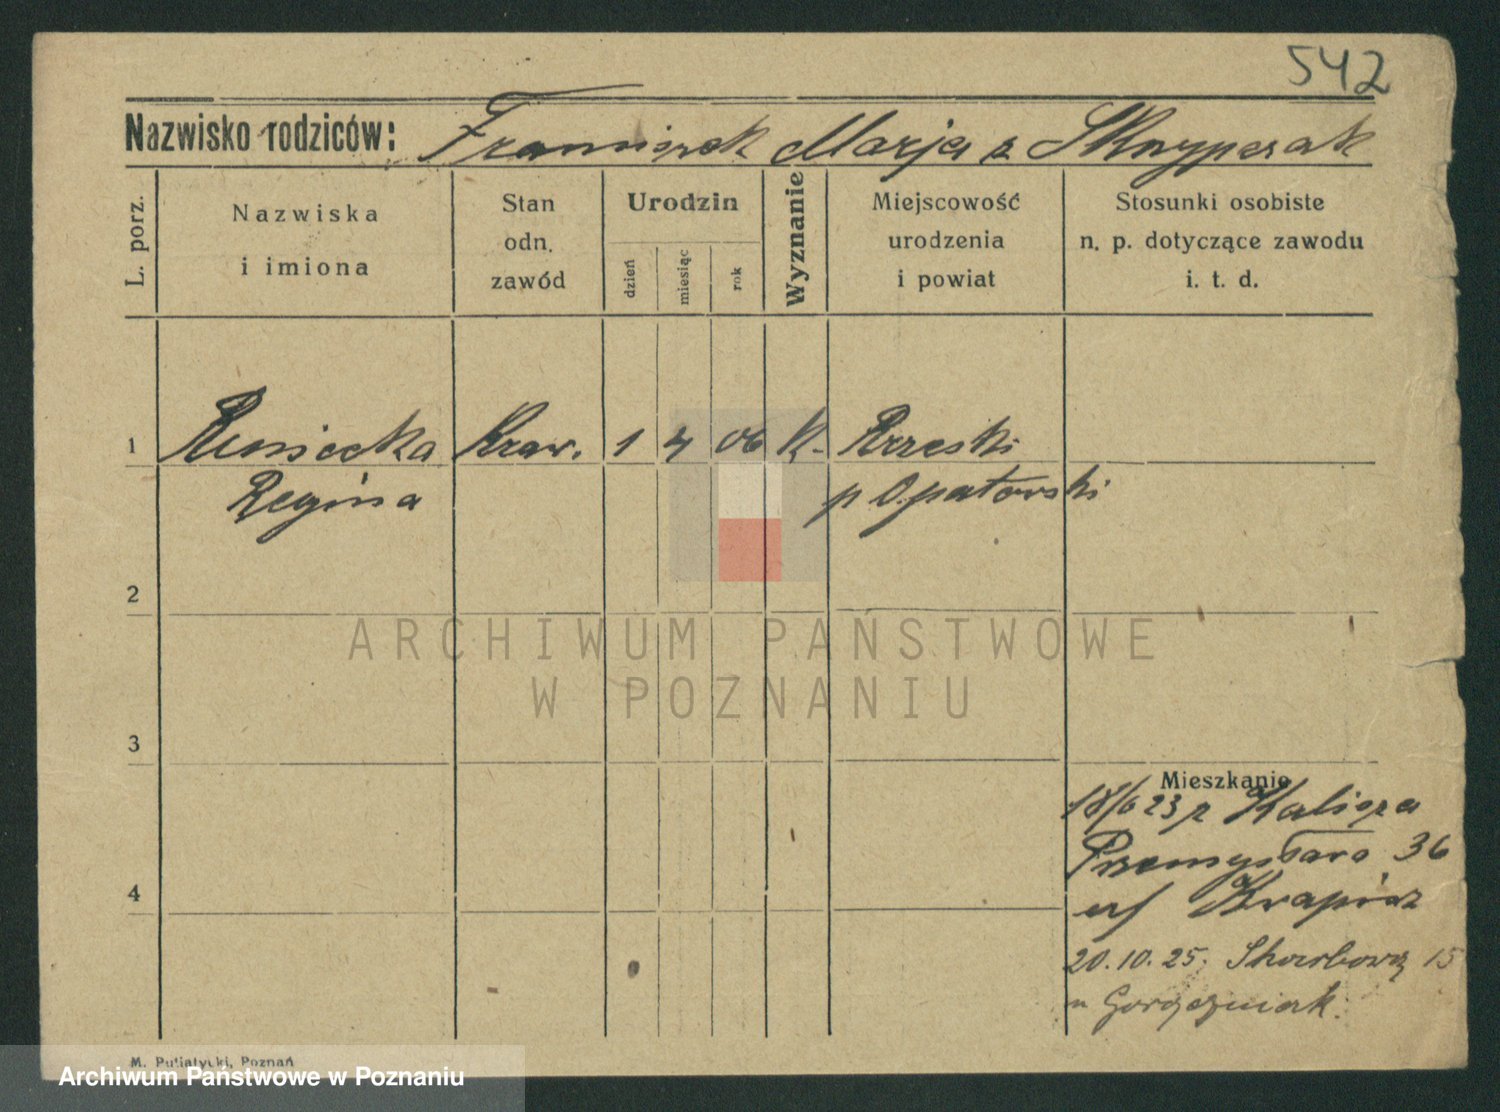 542
Nazwisko rodziców: Franciszek Marja z Skrzypczak
L. porz.
Nazwiska
i imiona
Stan
odn.
zawód
Urodzin
dzień
miesiąc
rok
Wyznanie
Miejscowość
urodzenia
i powiat
Stosunki osobiste
n. p. dotyczące zawodu
i. t. d.
1 Rusiecka Kraw. 1 4 06 K-
Regina p Opatowski
2
3
4
Mieszkanie
18/6 23 z Kalisza
36
20.10.25, Skarbowa 15
u
M. Putiatycki, Poznań
ARCHIWUM PAŃSTWOWE
W POZNANIU
Archiwum Państwowe w Poznaniu